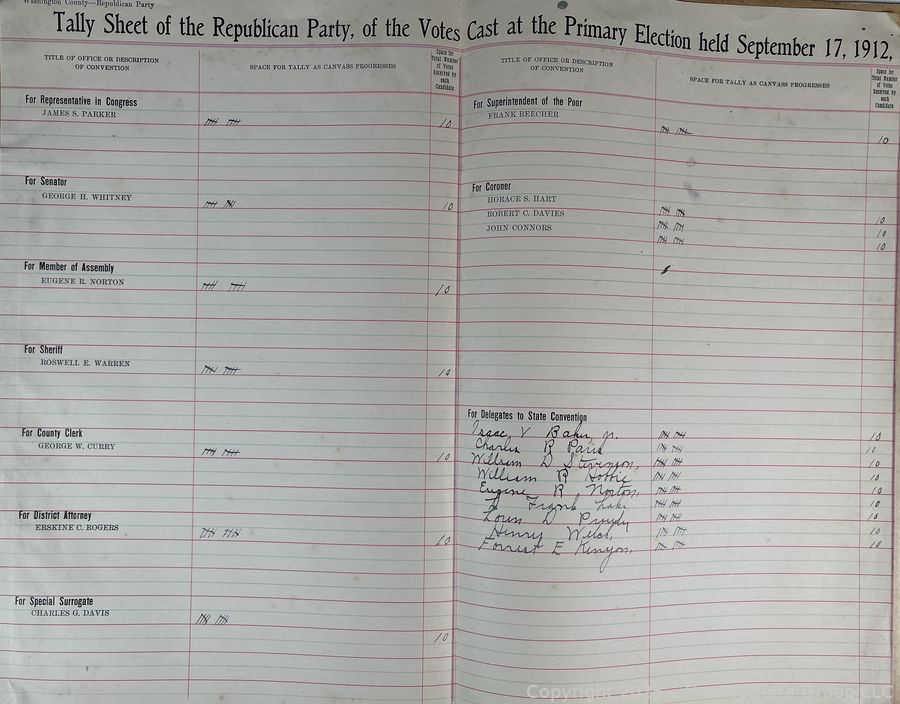 Washington County—Republican Party
Tally Sheet of the Republican Party, of the Votes Cast at the Primary Election held September 17, 1912,
TITLE OF OFFICE OR DESCRIPTION
OF CONVENTION
SPACE FOR TALLY AS CANVASS PROGRESSES
Space for
Total Number
of Votes
Received by
each
Candidate
For Representative in Congress
JAMES S. PARKER 10
For Senator
GEORGE H. WHITNEY 10
For Member of Assembly
EUGENE R. NORTON 10
For Sheriff
ROSWELL E. WARREN 10
For County Clerk
GEORGE W. CURRY 10
For District Attorney
ERSKINE C. ROGERS 10
For Special Surrogate
CHARLES G. DAVIS 10
TITLE OF OFFICE OR DESCRIPTION
OF CONVENTION
SPACE FOR TALLY AS CANVASS PROGRESSES
Space for
Total Number
of Votes
Received by
each
Candidate
For Superintendent of the Poor
FRANK BEECHER 10
For Coroner
HORACE S. HART 10
ROBERT C. DAVIES 10
JOHN CONNORS 10
For Delegates to State Convention
Isaac V Baker, jr. 10
Charles R Paris 10
William D Stevenson, 10
William R 10
Eugene R Norton, 10
Frank 10
Loren D 10
Henry Welch, 10
Forrest E Kenyon, 10
Copyright LLC